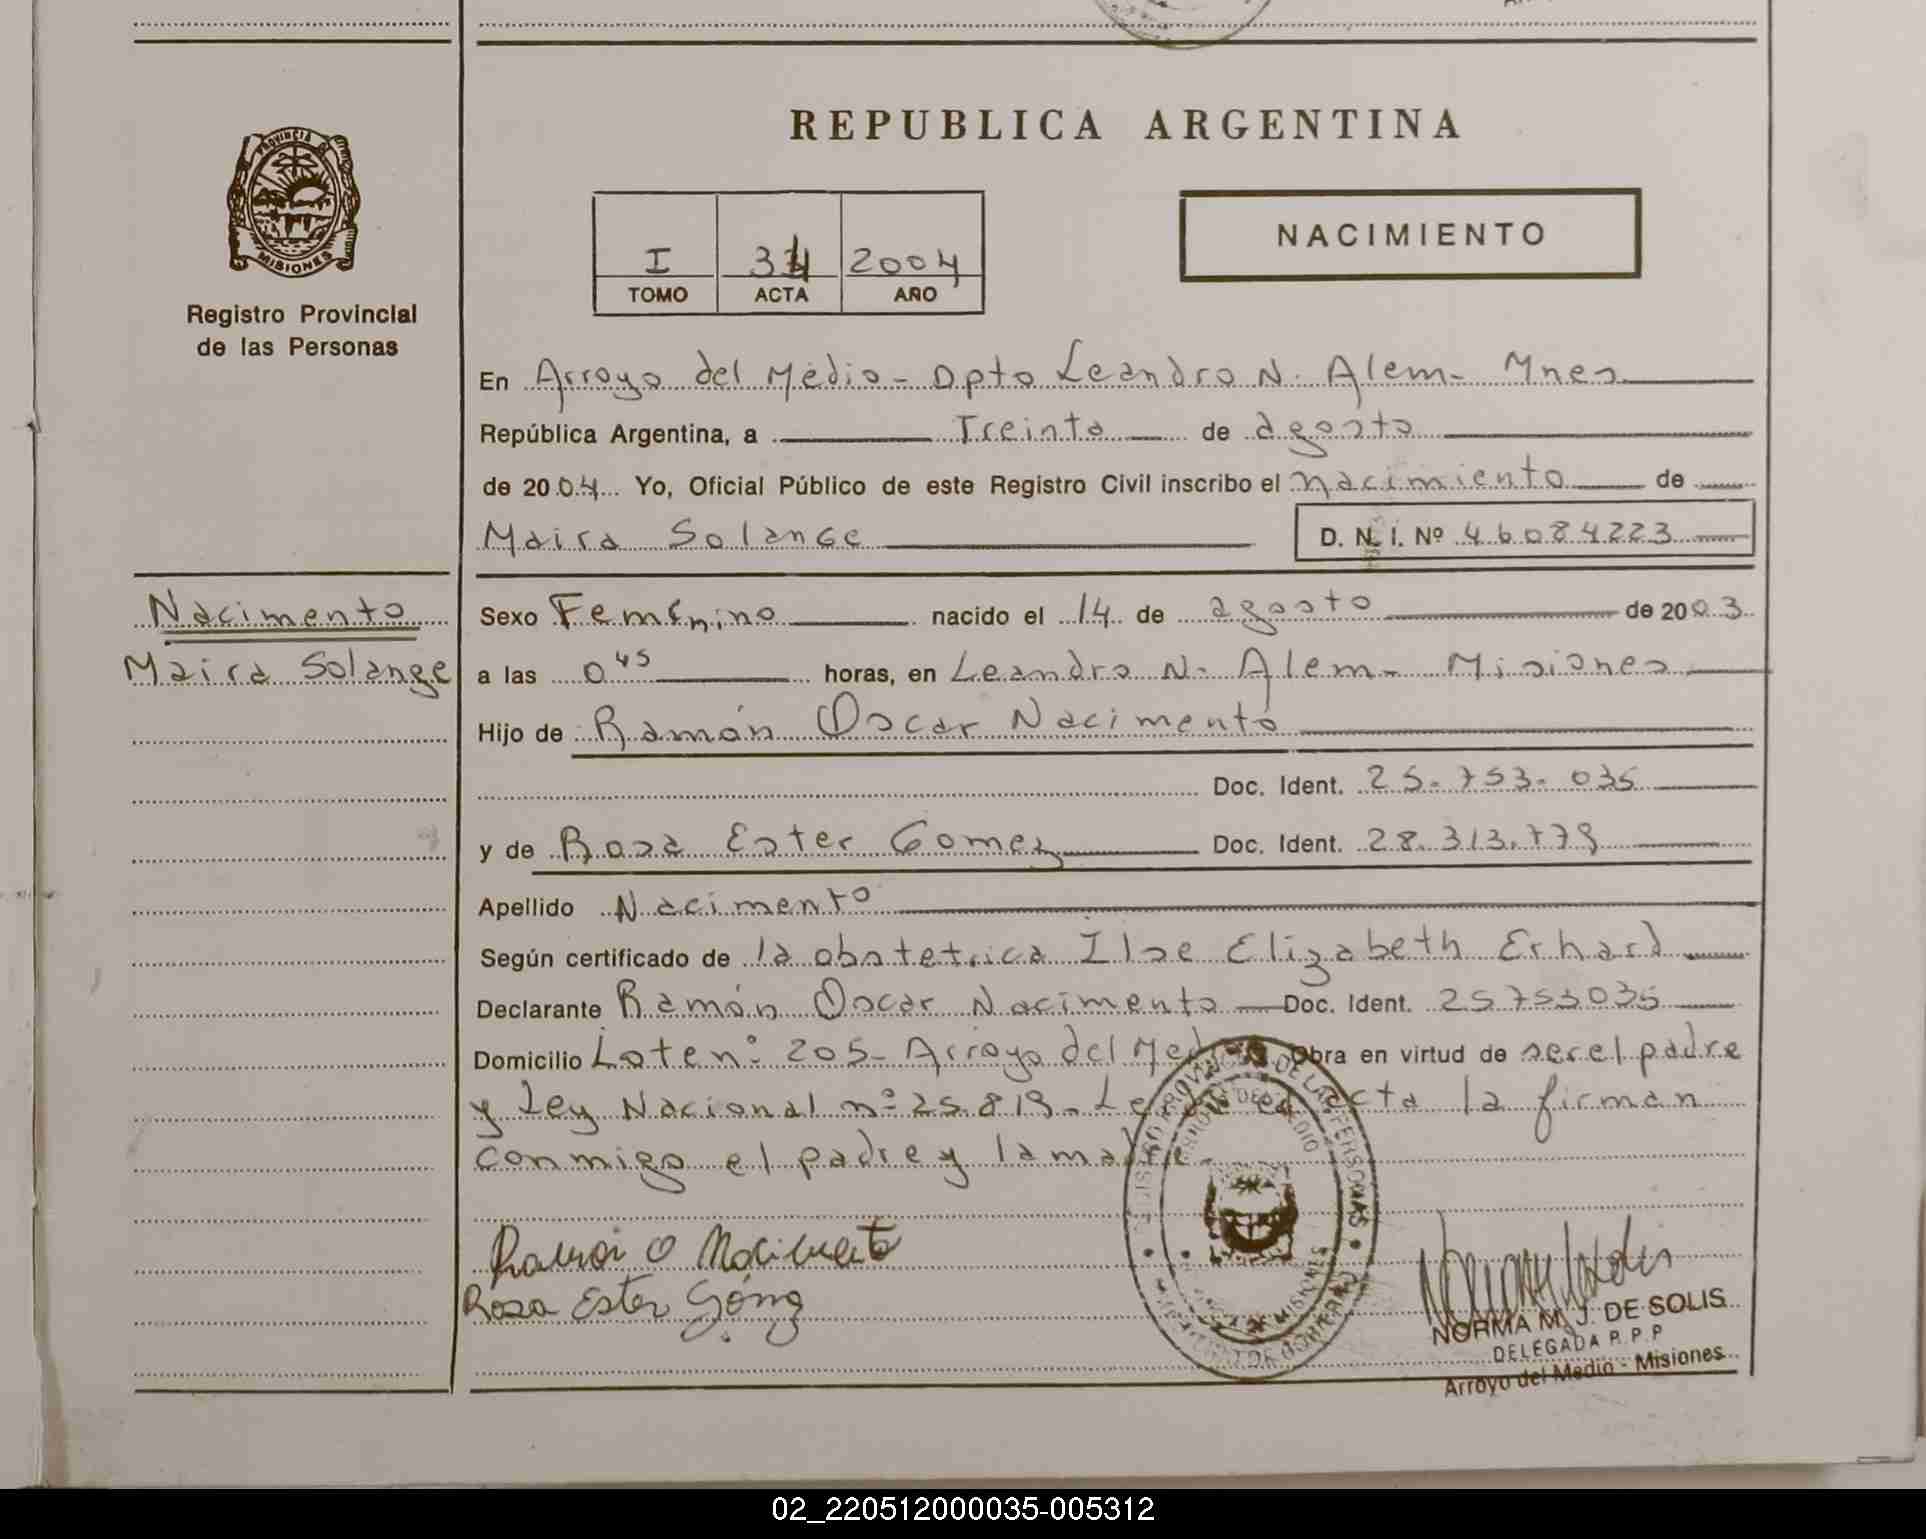 REPUBLICA ARGENTINA
PROVINCIA DE
MISIONES
Registro Provincial
de las Personas
I 34 2004
TOMO ACTA AÑO
NACIMIENTO
En Arroyo del Medio - Dpto Leandro N. Alem - Mnes
República Argentina, a Treinta de agosto
de 2004 Yo, Oficial Público de este Registro Civil inscribo el nacimiento de
Maira Solange D. N. I. Nº 46084223
Nacimento
Maira Solange
Sexo Femenino nacido el 14 de agosto de 2003
a las 0 45 horas, en Leandro N. Alem - Misiones
Hijo de Ramón Oscar Nacimento
Doc. Ident. 25.753.035
y de Rosa Ester Gomez Doc. Ident. 28.313.779
Apellido Nacimento
Según certificado de la obstetrica Ilse Elizabeth Erhard
Declarante Ramón Oscar Nacimento Doc. Ident. 25753035
Domicilio Lote nº 205 - Arroyo del Medio Obra en virtud de ser el padre
y Ley Nacional nº 25.819. Leida el acta la firman
conmigo el padre y la madre.
Ramon O Nacimento
Rosa Ester Gómez
NORMA M. J. DE SOLIS
DELEGADA R.P.P
Arroyo del Medio - Misiones
02_220512000035-005312